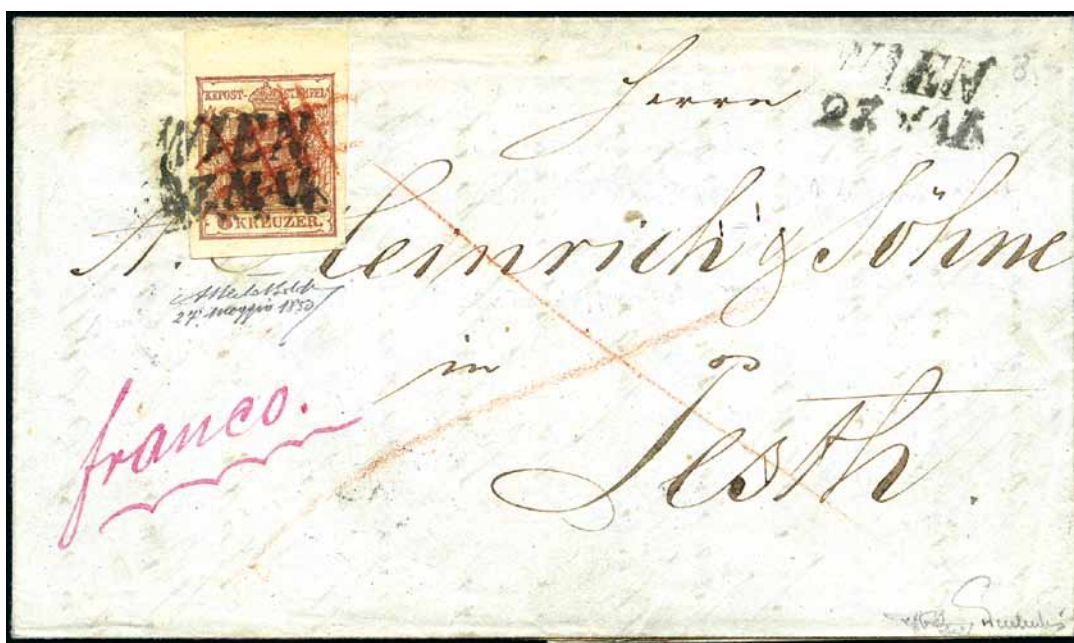 KKPOST-STEMPEL
WIEN
27. MAI.
6 KREUZER.
WIEN
27. MAI.
Herrn
A. Heinrich & Söhne
27. Maggio 1850
in
Pesth.
franco.